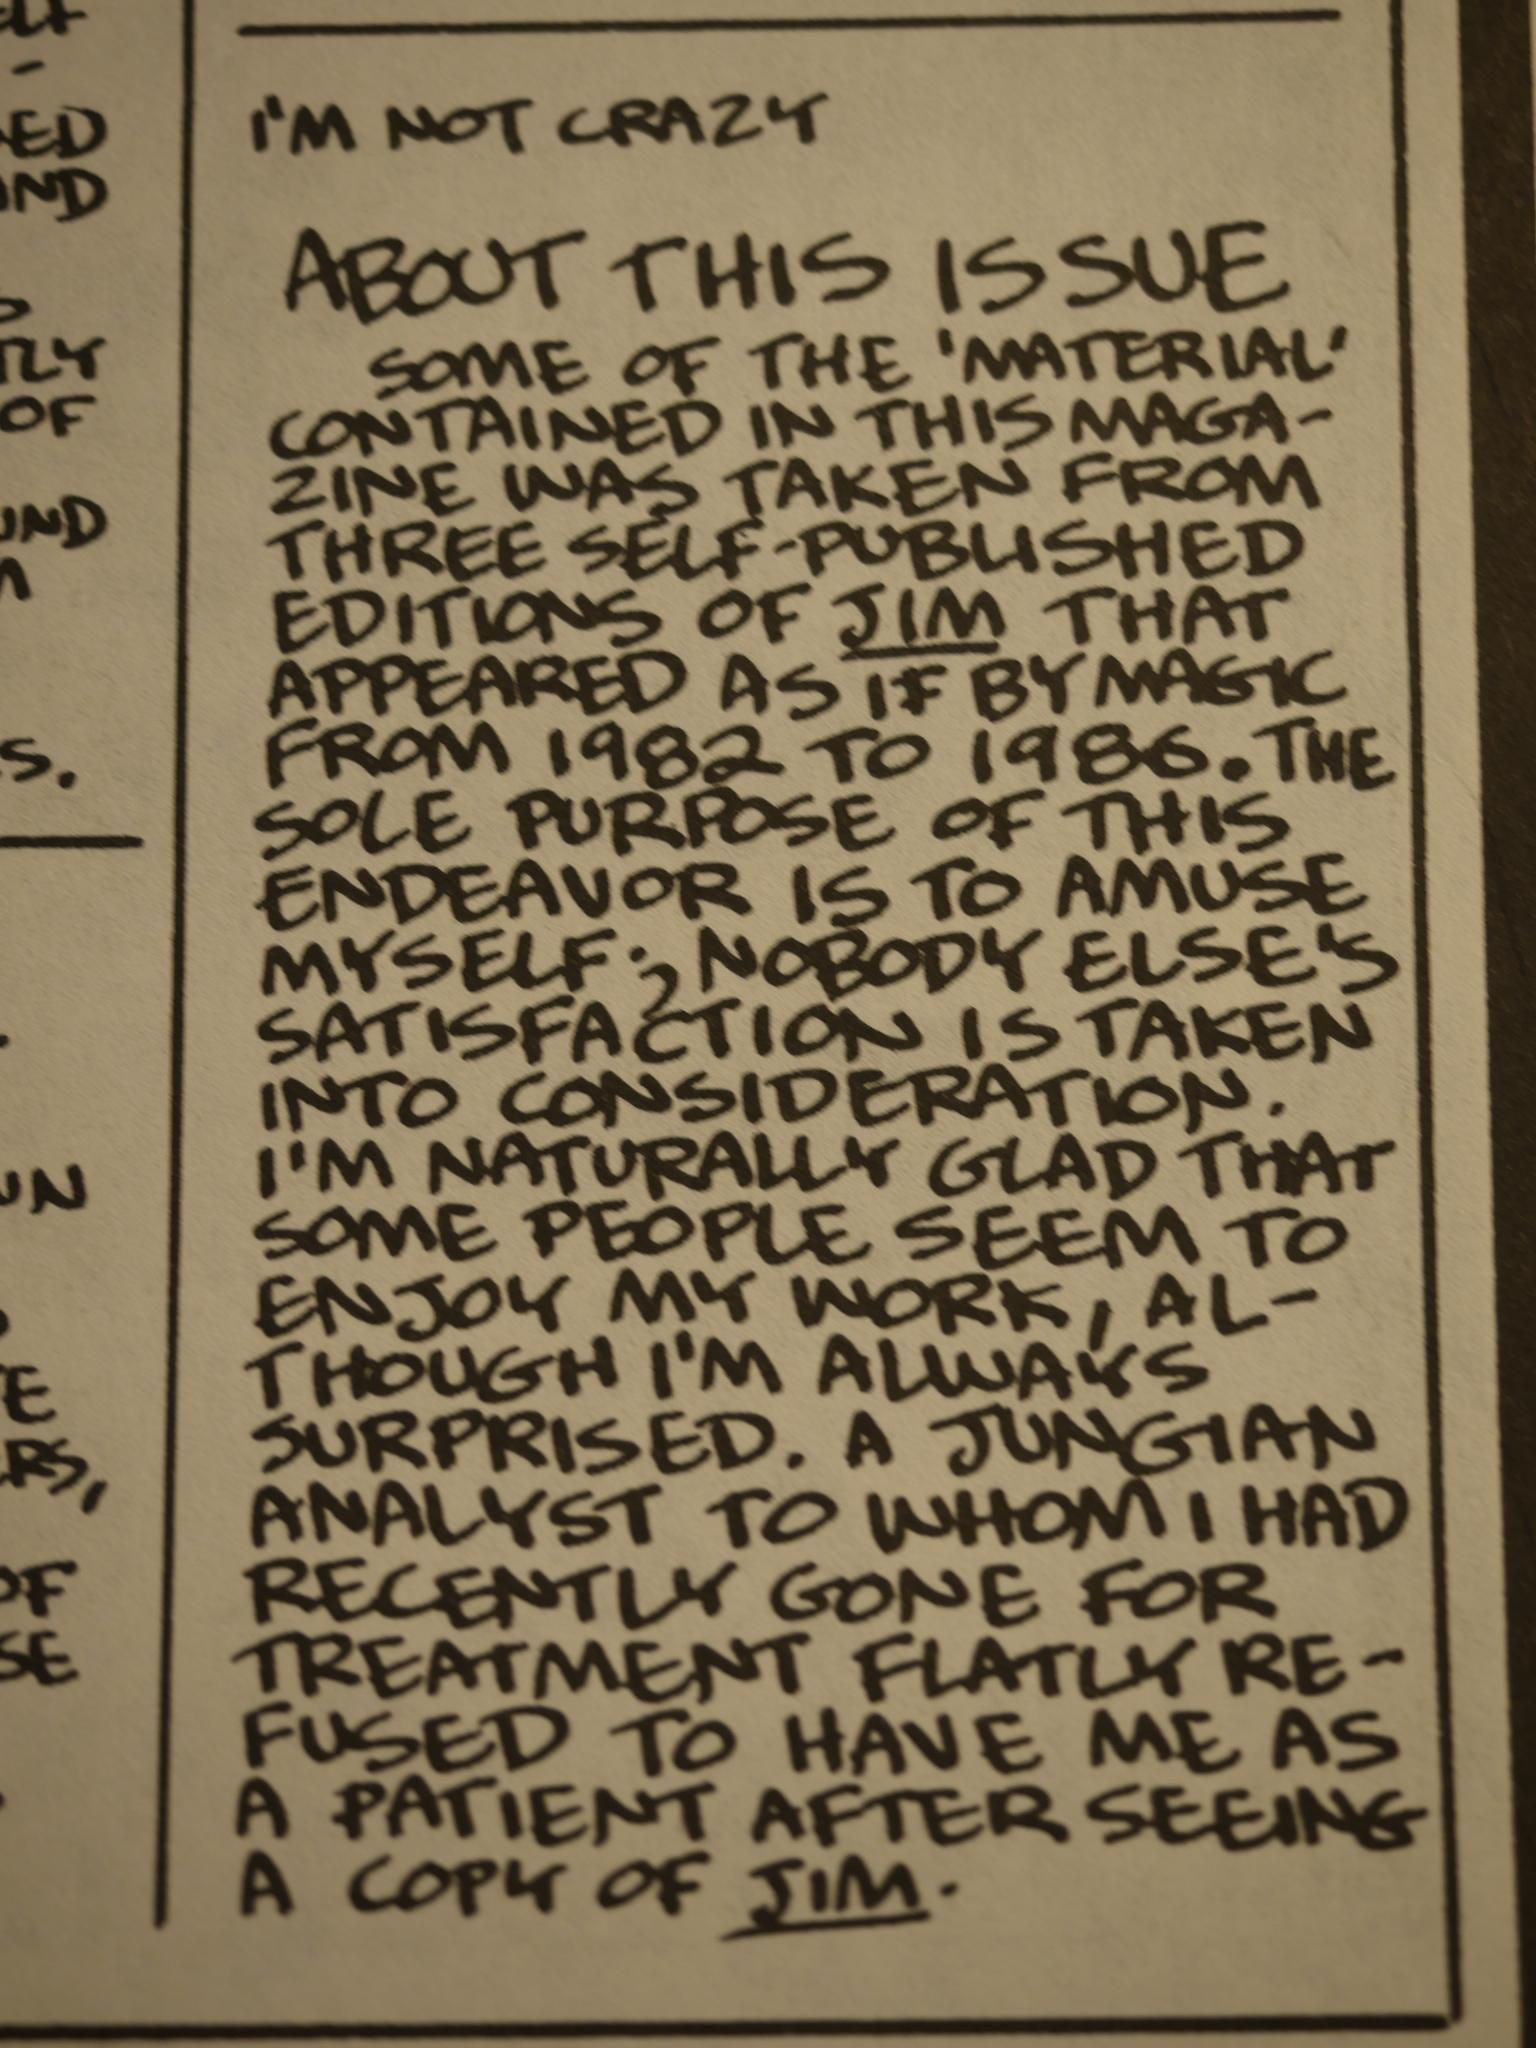 ELF
-
ED
IND
TLY
OF
UND
S.
UN
TE
ERS,
OF
SE
I'M NOT CRAZY
ABOUT THIS ISSUE
SOME OF THE 'MATERIAL'
CONTAINED IN THIS MAGA-
ZINE WAS TAKEN FROM
THREE SELF-PUBLISHED
EDITIONS OF JIM THAT
APPEARED AS IF BY MAGIC
FROM 1982 TO 1986. THE
SOLE PURPOSE OF THIS
ENDEAVOR IS TO AMUSE
MYSELF; NOBODY ELSE'S
SATISFACTION IS TAKEN
INTO CONSIDERATION.
I'M NATURALLY GLAD THAT
SOME PEOPLE SEEM TO
ENJOY MY WORK, AL-
THOUGH I'M ALWAYS
SURPRISED. A JUNGIAN
ANALYST TO WHOM I HAD
RECENTLY GONE FOR
TREATMENT FLATLY RE-
FUSED TO HAVE ME AS
A PATIENT AFTER SEEING
A COPY OF JIM.